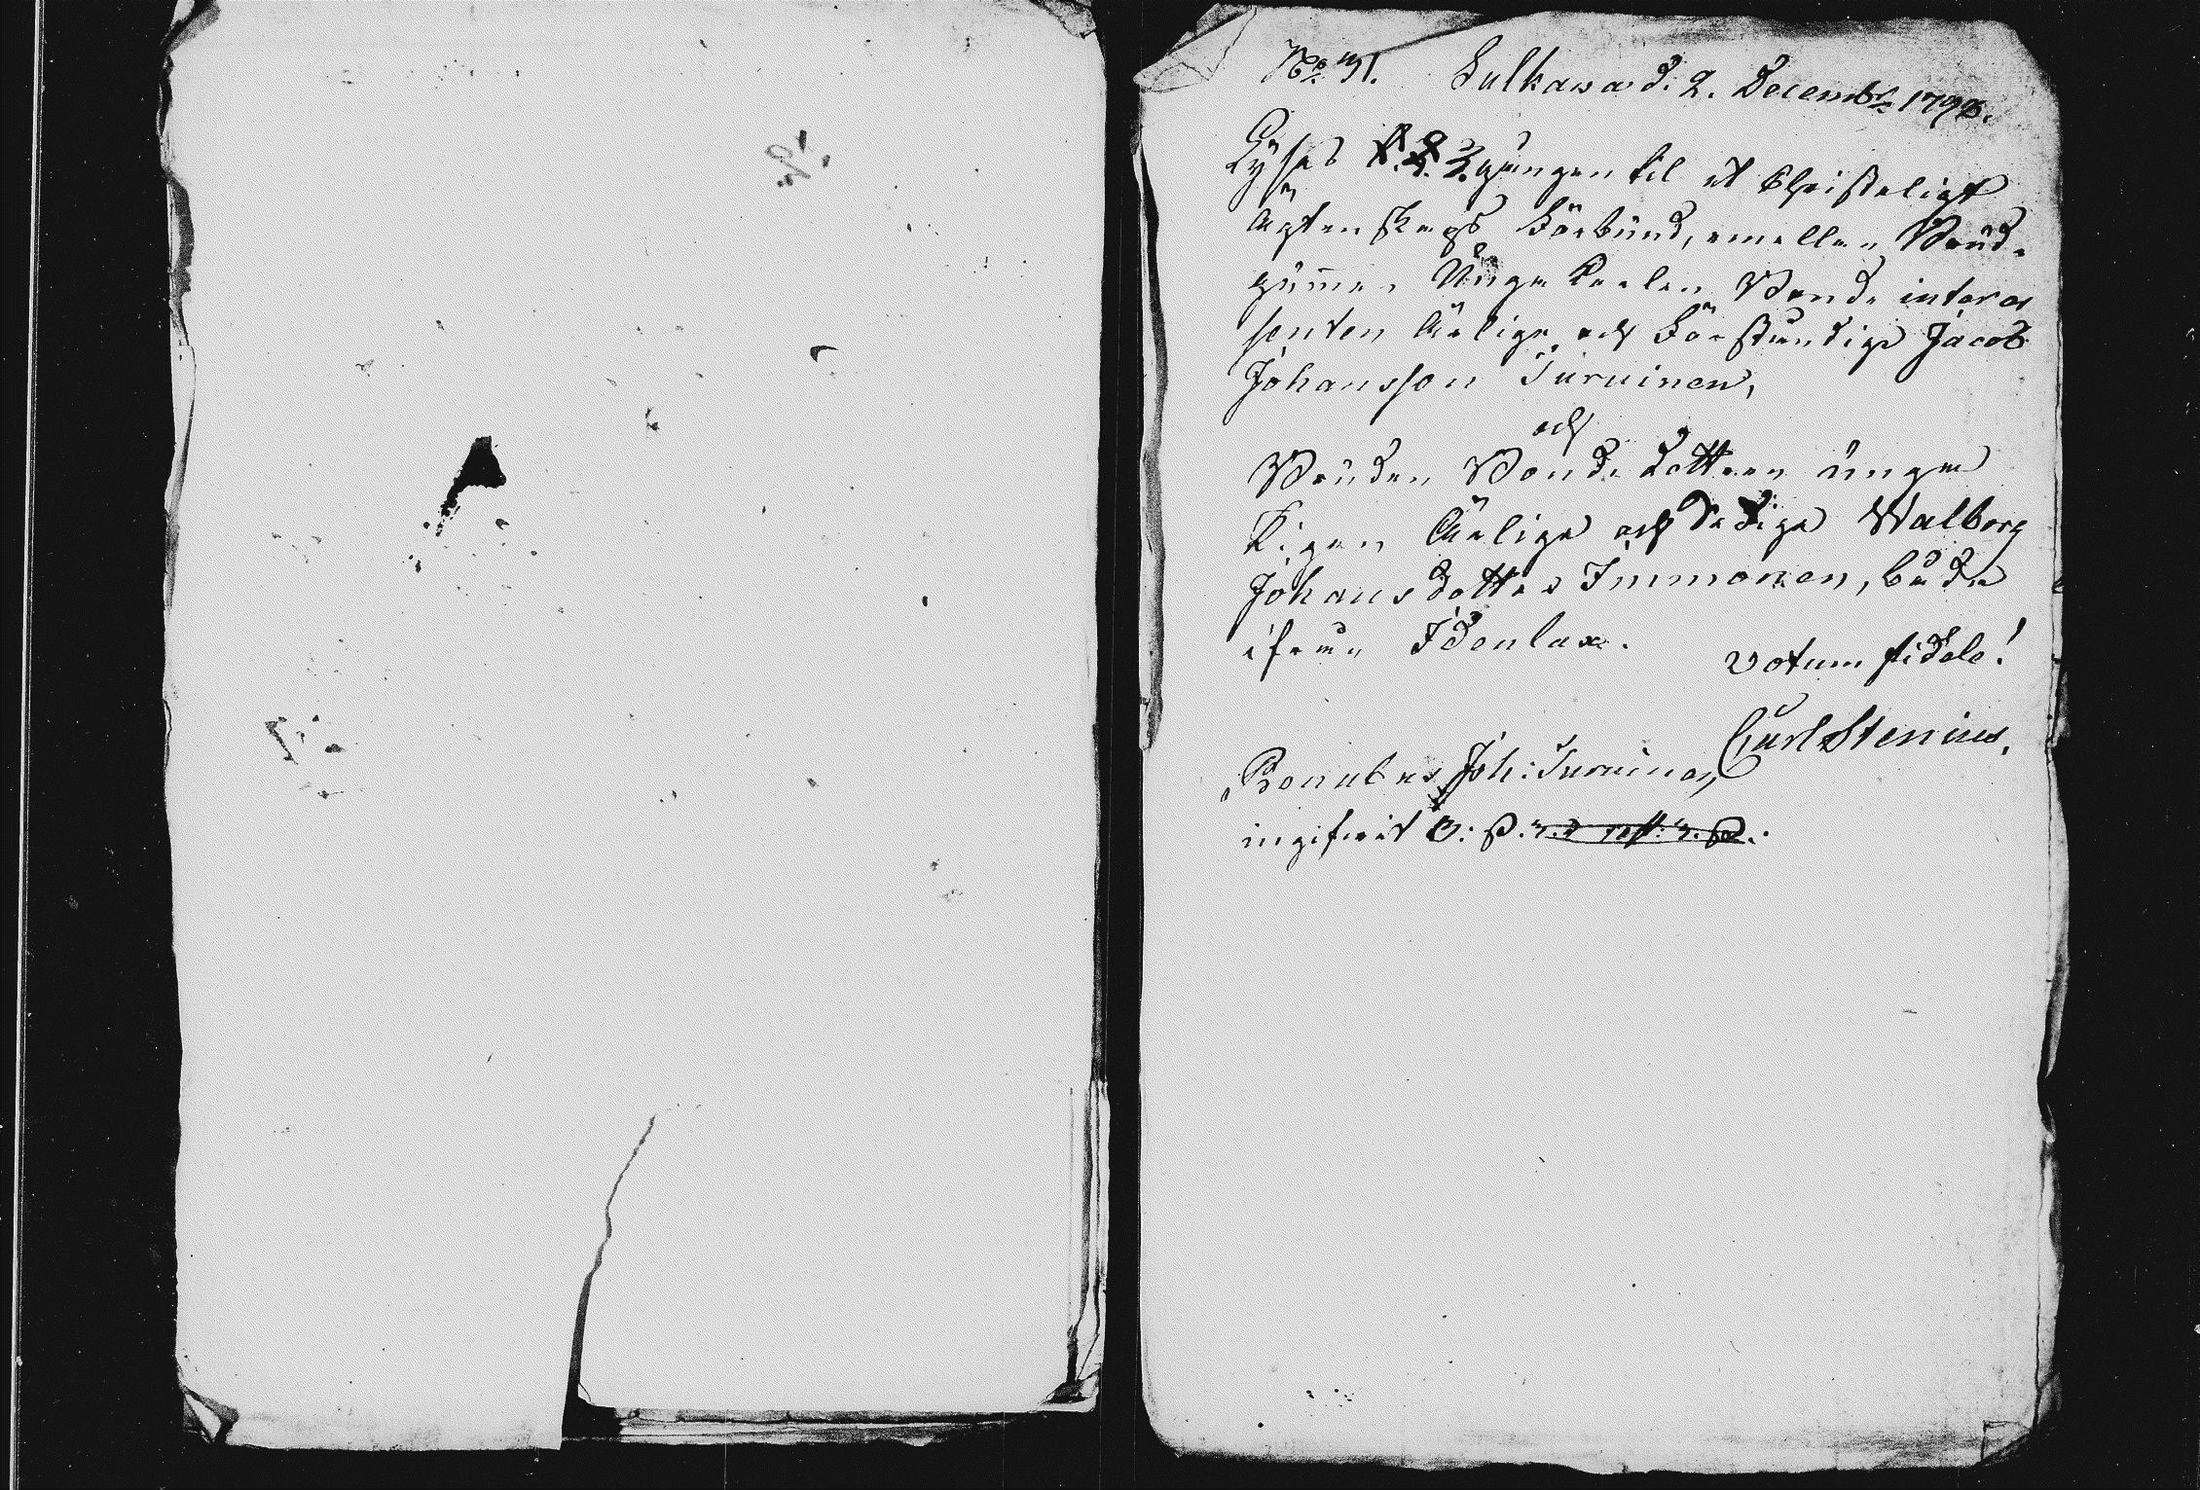 No 31. Sulkava d. 2. Decembr 1798.
Lyses 1. 2. 3. gången til et Christeligt
Ägtenskaps Förbund, emellan Brud-
gummen Unge Karlen Bonde interes
senten Ärlige och Förståndige Jacob
Johansson Turuinen,
och
Bruden Bonde dottren unga
Pigan Ärliga och Sediga Walborg
Johansdotter Immonen, båda
ifrån Idenlax.
Votum fidele!
Carl Stenius.
Pronubus Joh: Turuinen
ingifvit